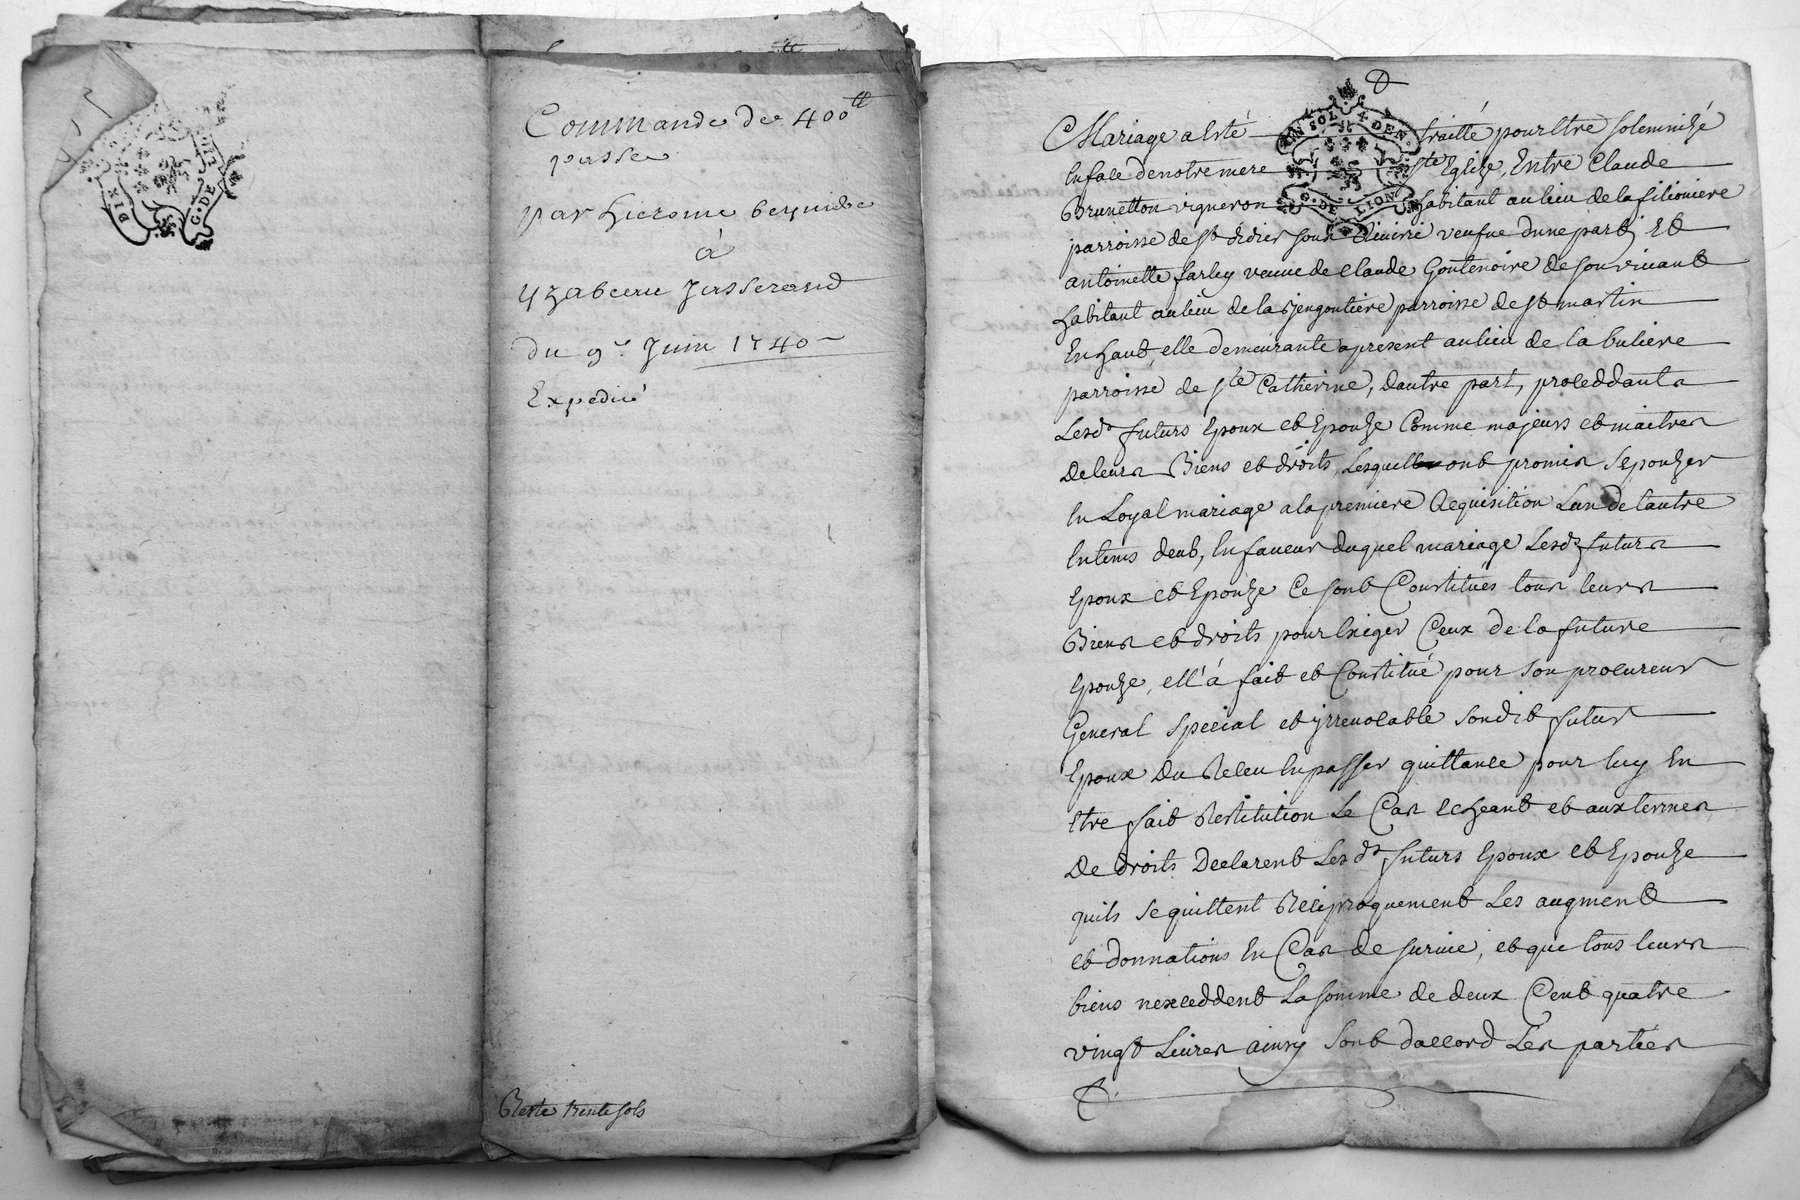 Commande de 400tt
passée
par Hierome beynide
à
Yzabeau Jasserand
du 9e. Juin 1740
Expedié
Reste trente sols
DIX
G. DE LIO
UN SOL 4. DEN.
G. DE LION
Mariage a Esté traitté pour Etre solemnizé
En face de notre mere Ste Eglize, Entre Claude
Brunetton vigneron habitant au lieu de la filioniere
parroisse de st didier sous Riuirie veufue dune part, Et
antoinette farley veuue de Claude Goutenoire de son viuant
habitant au lieu de la parroisse de st martin
En haut, elle demeurante apresent au lieu de la buliere
parroisse de Ste Catherine, dautre part, proceddant
Lesds. futurs Epoux et Epouze Comme majeurs et maitres
De leurs Biens et droits, Lesquels ont promis sepouzer
En Loyal mariage a la premiere Requisition Lun de lautre
En tems deub, En faueur duquel mariage Lesds futurs
Epoux et Epouze Ce sont Constitués tous leurs
Biens et droits pour Exiger Ceux de la future
Epouze, ell'á fait et Constitué pour son procureur
General special et jrreuocable sondit futur
Epoux Du Receu En passer quittance pour luy En
Etre fait Restitution Le Cas Echeant et aux termes
De droits Declarent Lesds futurs Epoux et Epouze
quils se quittent Reciproquement Les augment
et donnations En Cas de suruie, et que tous leurs
biens nexceddent La somme de deux Cent quatre
vingt Liures ainsy sont daccord Les parties